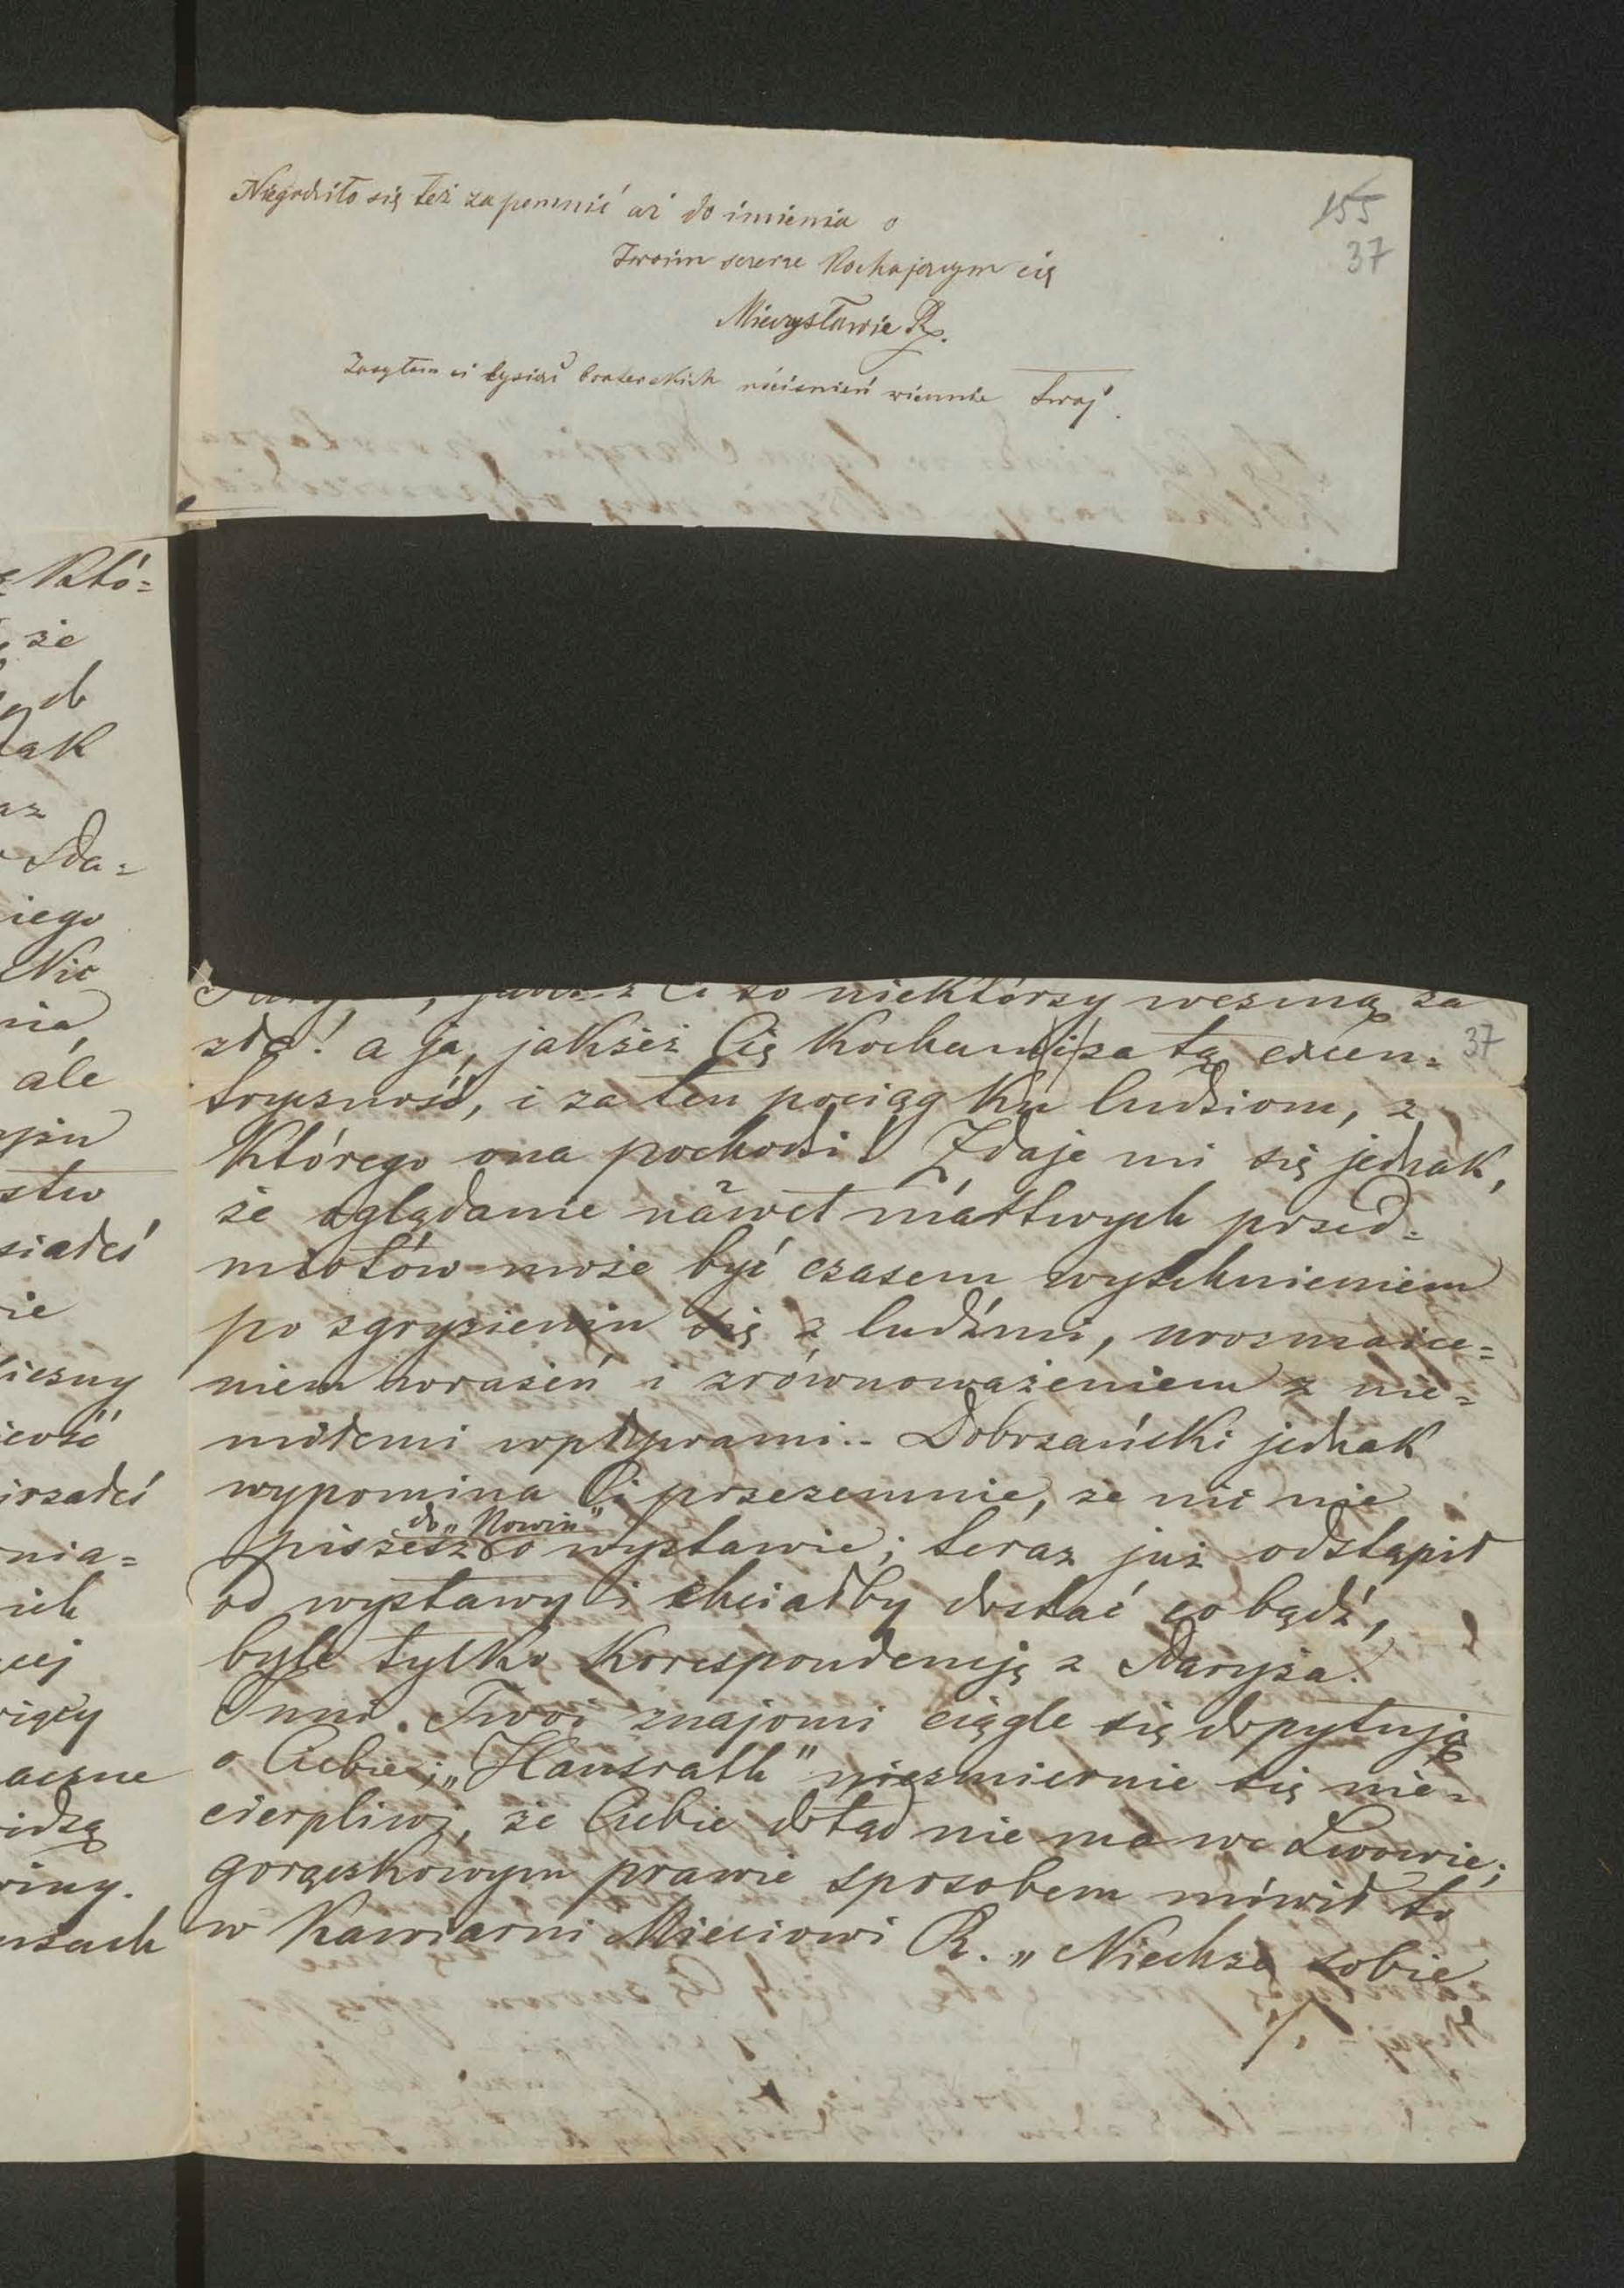 Niegodziło się też zapomnić aż do imienia o
Twoim szczerze kochającym cię
Mieczysławie R.
Zasyłam ci tysiąc braterskich uściśnień wiernie twój.
155
37
któ=
że
ak
iego
Nic
nia,
ale
stw
ie
nia=
ich
cej
aczne
idzą
winy.
Ci to niektórzy wezmą za
złe! a ja, jakżeż Cię kocham za tę excen=
37
tryczność, i za ten pociąg ku ludziom, z
którego ona pochodzi! Zdaje mi się jednak,
że oglądanie nawet martwych przed=
miotów może być czasem wytchnieniem
po zgryzieniu się z ludźmi, urozmaice=
niem wrażeń i zrównoważeniem z nie=
miłemi wpływami.. Dobrzański jednak
wypomina Ci przezemnie, że nic nie
do „Nowin"
piszesz o wystawie; teraz już odstąpił
od wystawy i chciałby dostać co bądź,
byle tylko korespondencję z Paryża.
Inni Twoi znajomi ciągle się dopytują
o Ciebie; „Hausrath" niezmiernie się nie=
cierpliwi, że Ciebie dotąd nie ma we Lwowie;
gorączkowym prawie sposobem mówił to
w kawiarni Mieciowi R. „Niechże sobie
./.